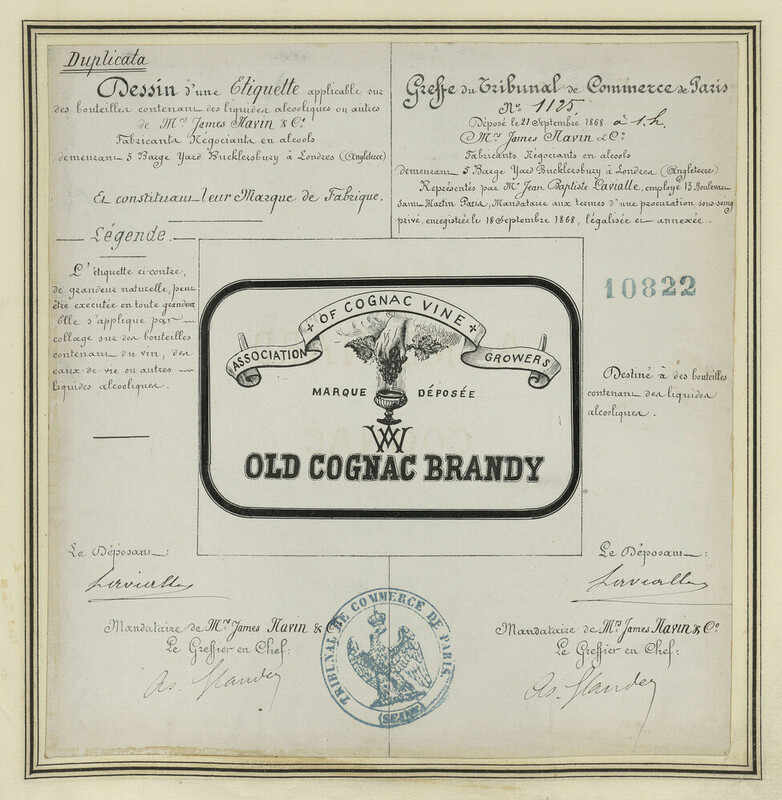 Duplicata
Dessin d'une Etiquette applicable sur
des bouteilles contenant des liquides alcooliques ou autres
de Mrs James Navin & Co
Fabricants Négociants en alcools
demeurant 5 Barge Yard Bucklersbury à Londres (Angleterre)
Et constituant leur Marque de Fabrique.
Légende.
L'étiquette ci-contre,
de grandeur naturelle, peut
être exécutée en toute grandeur
Elle s'applique par
collage sur des bouteilles
contenant du vin, des
eaux-de-vie ou autres
liquides alcooliques.
Greffe du Tribunal de Commerce de Paris
No 1125
Déposé le 21 Septembre 1868 à 1.h.
Mrs James Navin & Co
Fabricants Négociants en alcools
demeurant 5 Barge Yard Bucklersbury à Londres (Angleterre)
Représentés par Mr Jean Baptiste Lavialle, employé 13 Boulevart
Saint Martin Paris, Mandataire aux termes d'une procuration sous-seing
privé, enregistrée le 18 Septembre 1868, légalisée et annexée.
10822
Destiné à des bouteilles
contenant des liquides
alcooliques.
ASSOCIATION + OF COGNAC VINE + GROWERS
MARQUE DÉPOSÉE
OLD COGNAC BRANDY
Le Déposant:
Lavialle
Mandataire de Mrs James Navin & Co
Le Greffier en Chef:
Le Déposant:
Lavialle
Mandataire de Mrs James Navin & Co
Le Greffier en Chef:
TRIBUNAL DE COMMERCE DE PARIS
(SEINE)